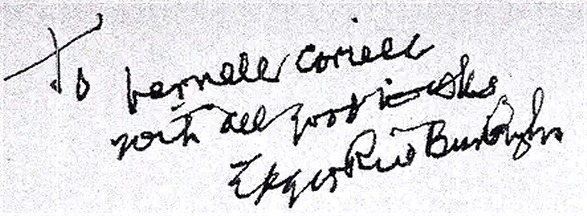 To Vernell Coriell
with all good wishes
Edgar Rice Burroughs